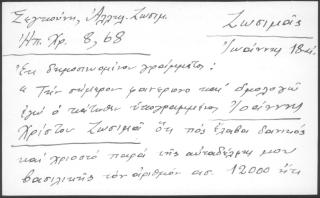 Σεγκούνη, Ἀλληλ. Ζωσιμ.
Ἠπ. Χρ. 8, 68
Ζωσιμᾶς
Ἰωάννης 18
Ἐκ δημοσιευομένου γράμματος:
« Τὴν σήμερον φανερόνω καὶ ὁμολογῶ
ἐγὼ ὁ κάτωθεν ὑπογραμμένος Ἰωάννης
Χρίστου Ζωσιμᾶ ὅτι πὸς ἔλαβα δανικὸς
καὶ χριοστὸ παρὰ τῆς αὐταδέλφης μου
βασιλικῆς τὸν ἀριθμὸν ασ. 12000 ἤτι